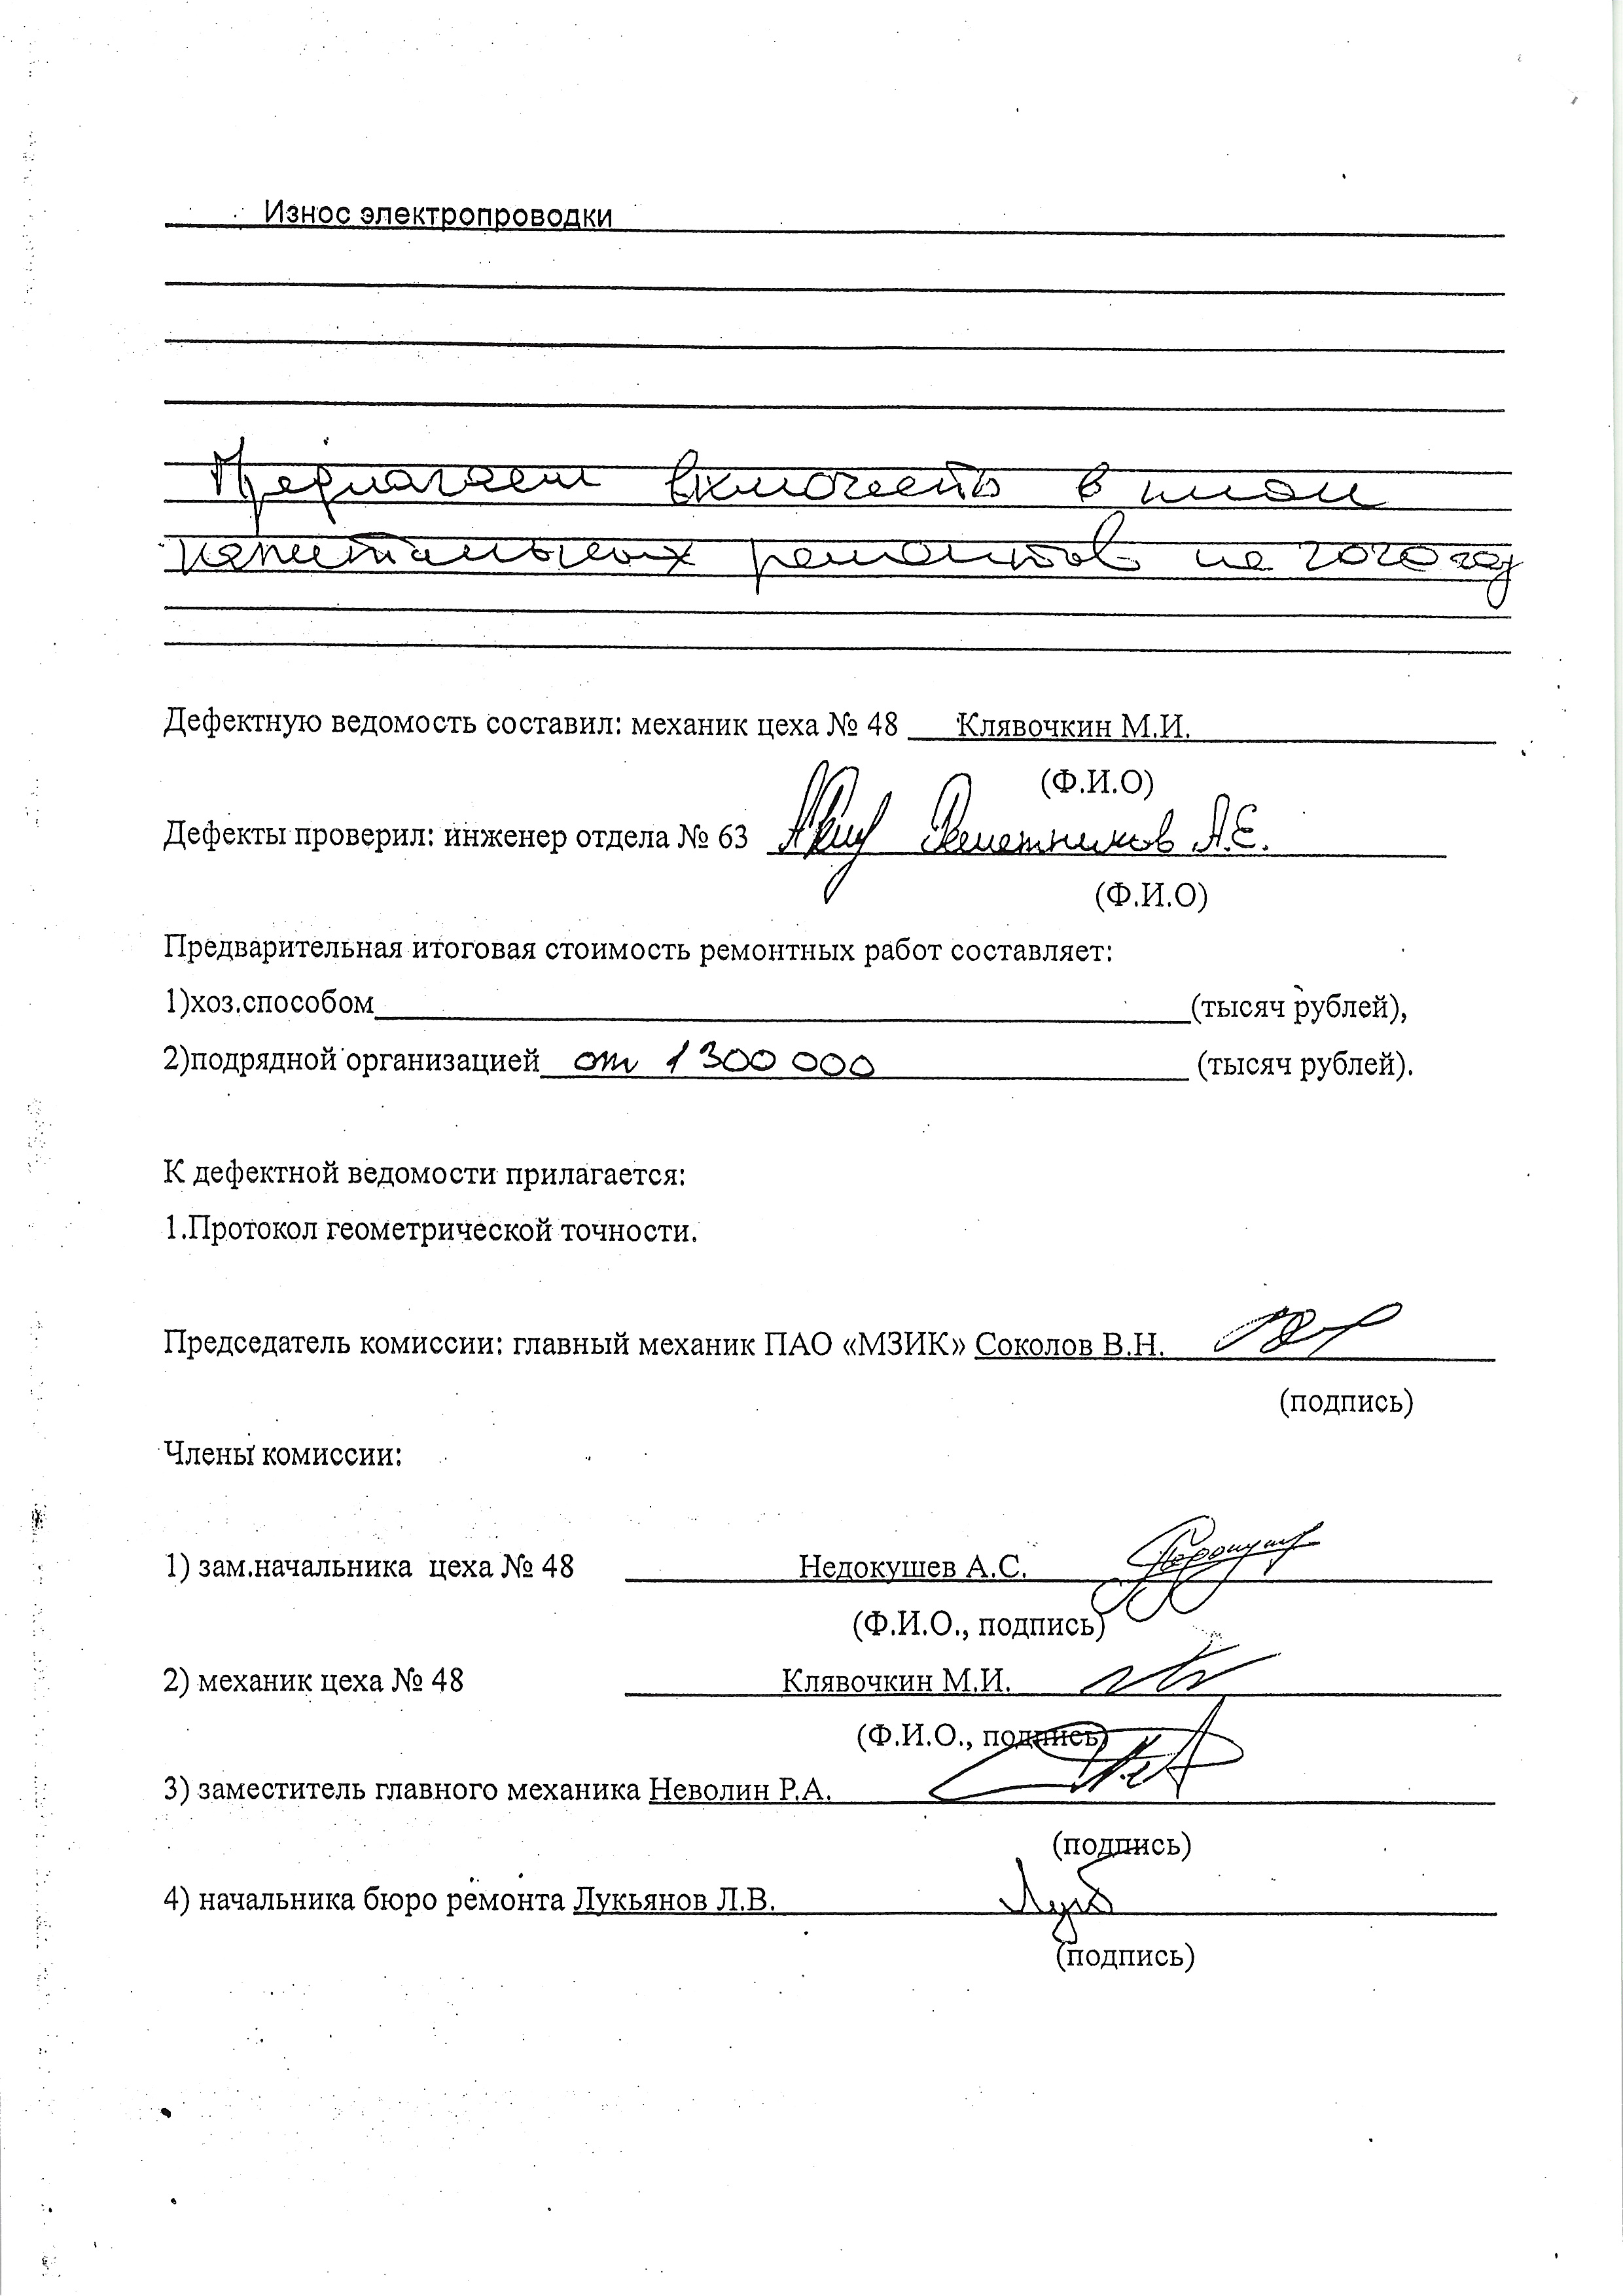 Износ электропроводки
Предлагаем включить в план
капитальных ремонтов на 2020 год
Дефектную ведомость составил: механик цеха № 48 Клявочкин М.И.
(Ф.И.О)
Дефекты проверил: инженер отдела № 63 Решетников А.Е.
(Ф.И.О)
Предварительная итоговая стоимость ремонтных работ составляет:
1)хоз.способом (тысяч рублей),
2)подрядной организацией от 1 300 000 (тысяч рублей).
К дефектной ведомости прилагается:
1.Протокол геометрической точности.
Председатель комиссии: главный механик ПАО «МЗИК» Соколов В.Н.
(подпись)
Члены комиссии:
1) зам.начальника цеха № 48 Недокушев А.С.
(Ф.И.О., подпись)
2) механик цеха № 48 Клявочкин М.И.
(Ф.И.О., подпись)
3) заместитель главного механика Неволин Р.А.
(подпись)
4) начальника бюро ремонта Лукьянов Л.В.
(подпись)